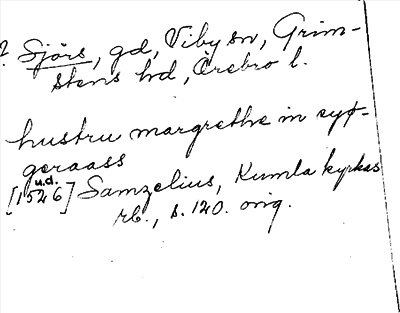 ? Sjörs, gd, Viby sn, Grim-
stens hd, Örebro l.
hustru margrethe in syþ-
geraass
u.d.
[1526] Samzelius, Kumla kyrkas
rb., s. 120. orig.